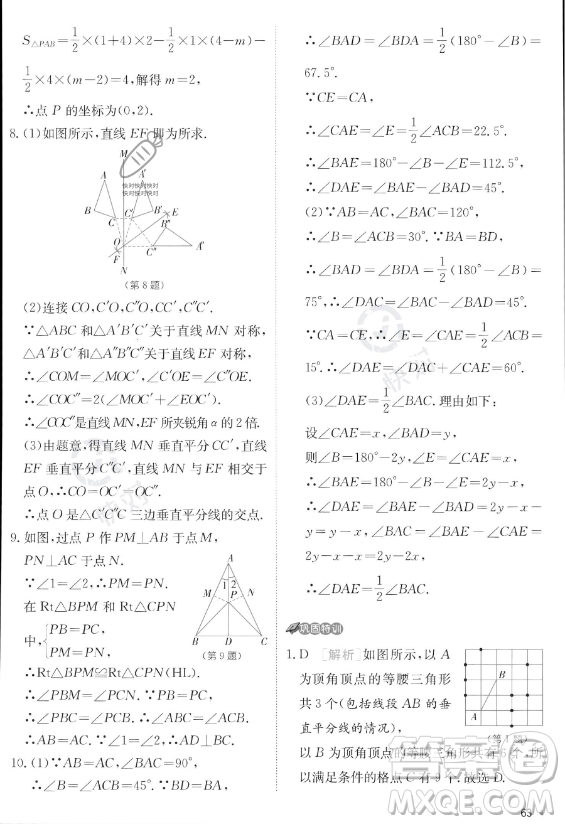 S△PAB=1/2×(1+4)×2-1/2×1×(4-m)-
1/2×4×(m-2)=4,解得m=2,
∴点P的坐标为(0,2).
8.(1)如图所示,直线EF即为所求.
M
A
快对快对快对
B
C
C′
B′
E
B″
O
C″
A′
F
N
(第8题)
(2)连接CO,C′O,C″O,CC′,C′C″.
∵△ABC和△A′B′C′关于直线MN对称,
△A′B′C′和△A″B″C″关于直线EF对称,
∴∠COM=∠MOC′,∠C′OE=∠EOC″.
∴∠COC″=2(∠MOC′+∠EOC′).
∴∠COC″是直线MN,EF所夹锐角α的2倍.
(3)由题意,得直线MN垂直平分CC′,直线
EF垂直平分C′C″,直线MN与直线EF相交于
点O,∴OC=OC′=OC″.
∴点O是△C′C″C三边垂直平分线的交点.
9.如图,过点P作PM⊥AB于点M,
PN⊥AC于点N.
∵∠1=∠2,∴PM=PN.
在Rt△BPM和Rt△CPN
中,{PB=PC,
PM=PN.
∴Rt△BPM≌Rt△CPN(HL).
∴∠PBM=∠PCN.
∵PB=PC,∴∠PBC=∠PCB.
∴∠PBM+∠PBC=∠PCN+∠PCB.
∴∠ABC=∠ACB.
∴AB=AC.又∵∠1=∠2,∴AD⊥BC.
A
1
2
M
N
P
B
D
C
(第9题)
10.(1)∵AB=AC,∠BAC=90°,
∴∠B=∠ACB=45°.∵BA=BD,
∴∠BAD=∠BDA=1/2(180°-∠B)=
67.5°.
∵CE=CA,
∴∠CAE=∠E=1/2∠ACB=22.5°.
∴∠BAE=180°-∠B-∠E=112.5°,
∴∠DAE=∠BAE-∠BAD=45°.
(2)∵AB=AC,∠BAC=120°,
∴∠B=∠ACB=30°.∵BA=BD,
∴∠BAD=∠BDA=1/2(180°-∠B)=
75°,∴∠DAC=∠BAC-∠BAD=45°.
∵CA=CE,∴∠CAE=∠E=1/2∠ACB=
15°.∴∠DAE=∠DAC+∠CAE=60°.
(3)∠DAE=1/2∠BAC.理由如下:
设∠CAE=x,∠BAD=y,
则∠B=180°-2y,∠E=∠CAE=x,
∴∠BAE=180°-∠B-∠E=2y-x,
∴∠DAE=∠BAE-∠BAD=2y-x-
y=y-x,∠BAC=∠BAE-∠CAE=
2y-x-x=2y-2x,
∴∠DAE=1/2∠BAC.
巩固特训
1.D [解析]如图所示,以A
为顶角顶点的等腰三角形
共3个(包括线段AB的垂
直平分线的情况),
B
A
(第1题)
以B为顶角顶点的等腰三角形共有6个,所
以满足条件的格点C有9个.故选D.
63